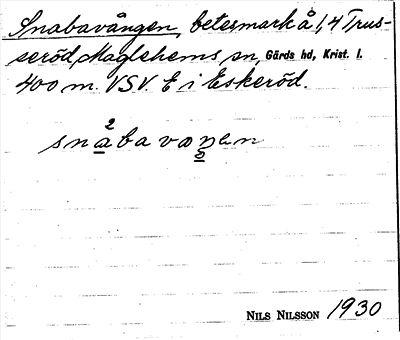 Snabavången, betesmark å 1,4 Trus-
seröd, Maglehems sn, Gärds hd, Krist. l.
400 m. VSV. E i Eskeröd.
2
snabavoŋen
NILS NILSSON 1930